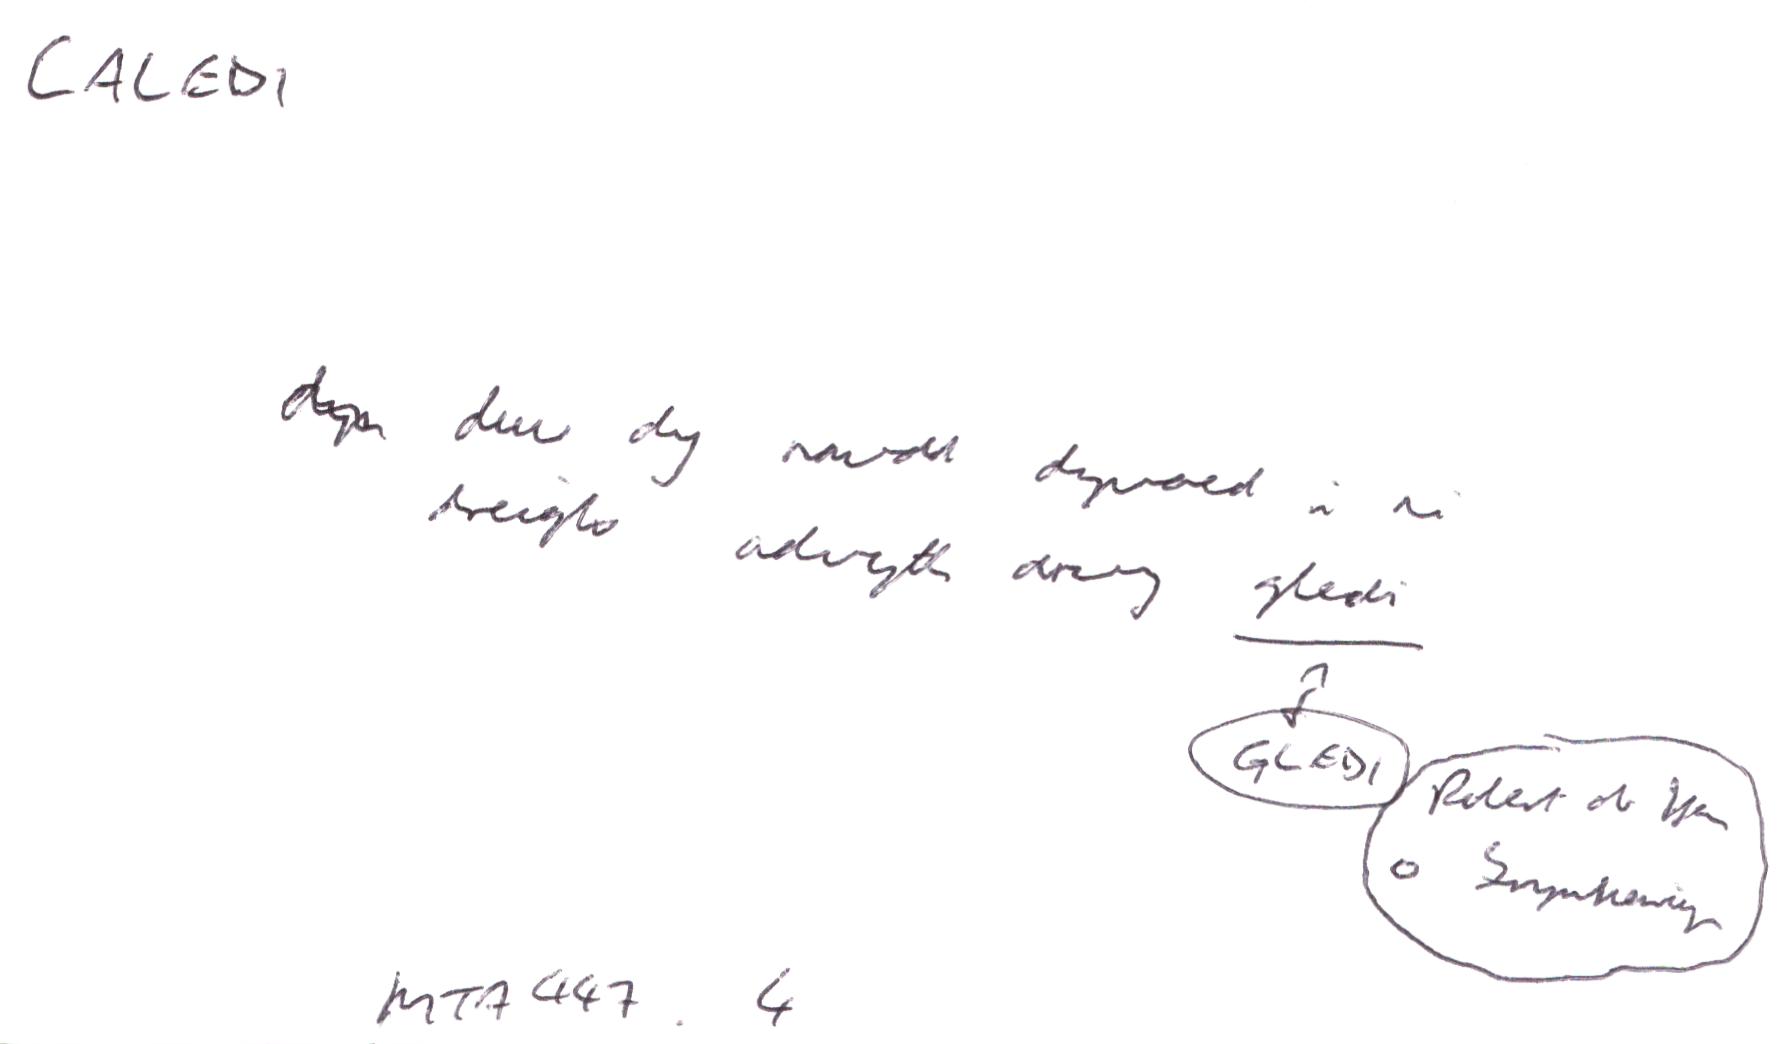 CALEDI
dyn duw dy nawdd dywaed i ni
treiglo adwyth drwy gledi
GLEDI
Robert ab Ifan
o
MTA 447. 4